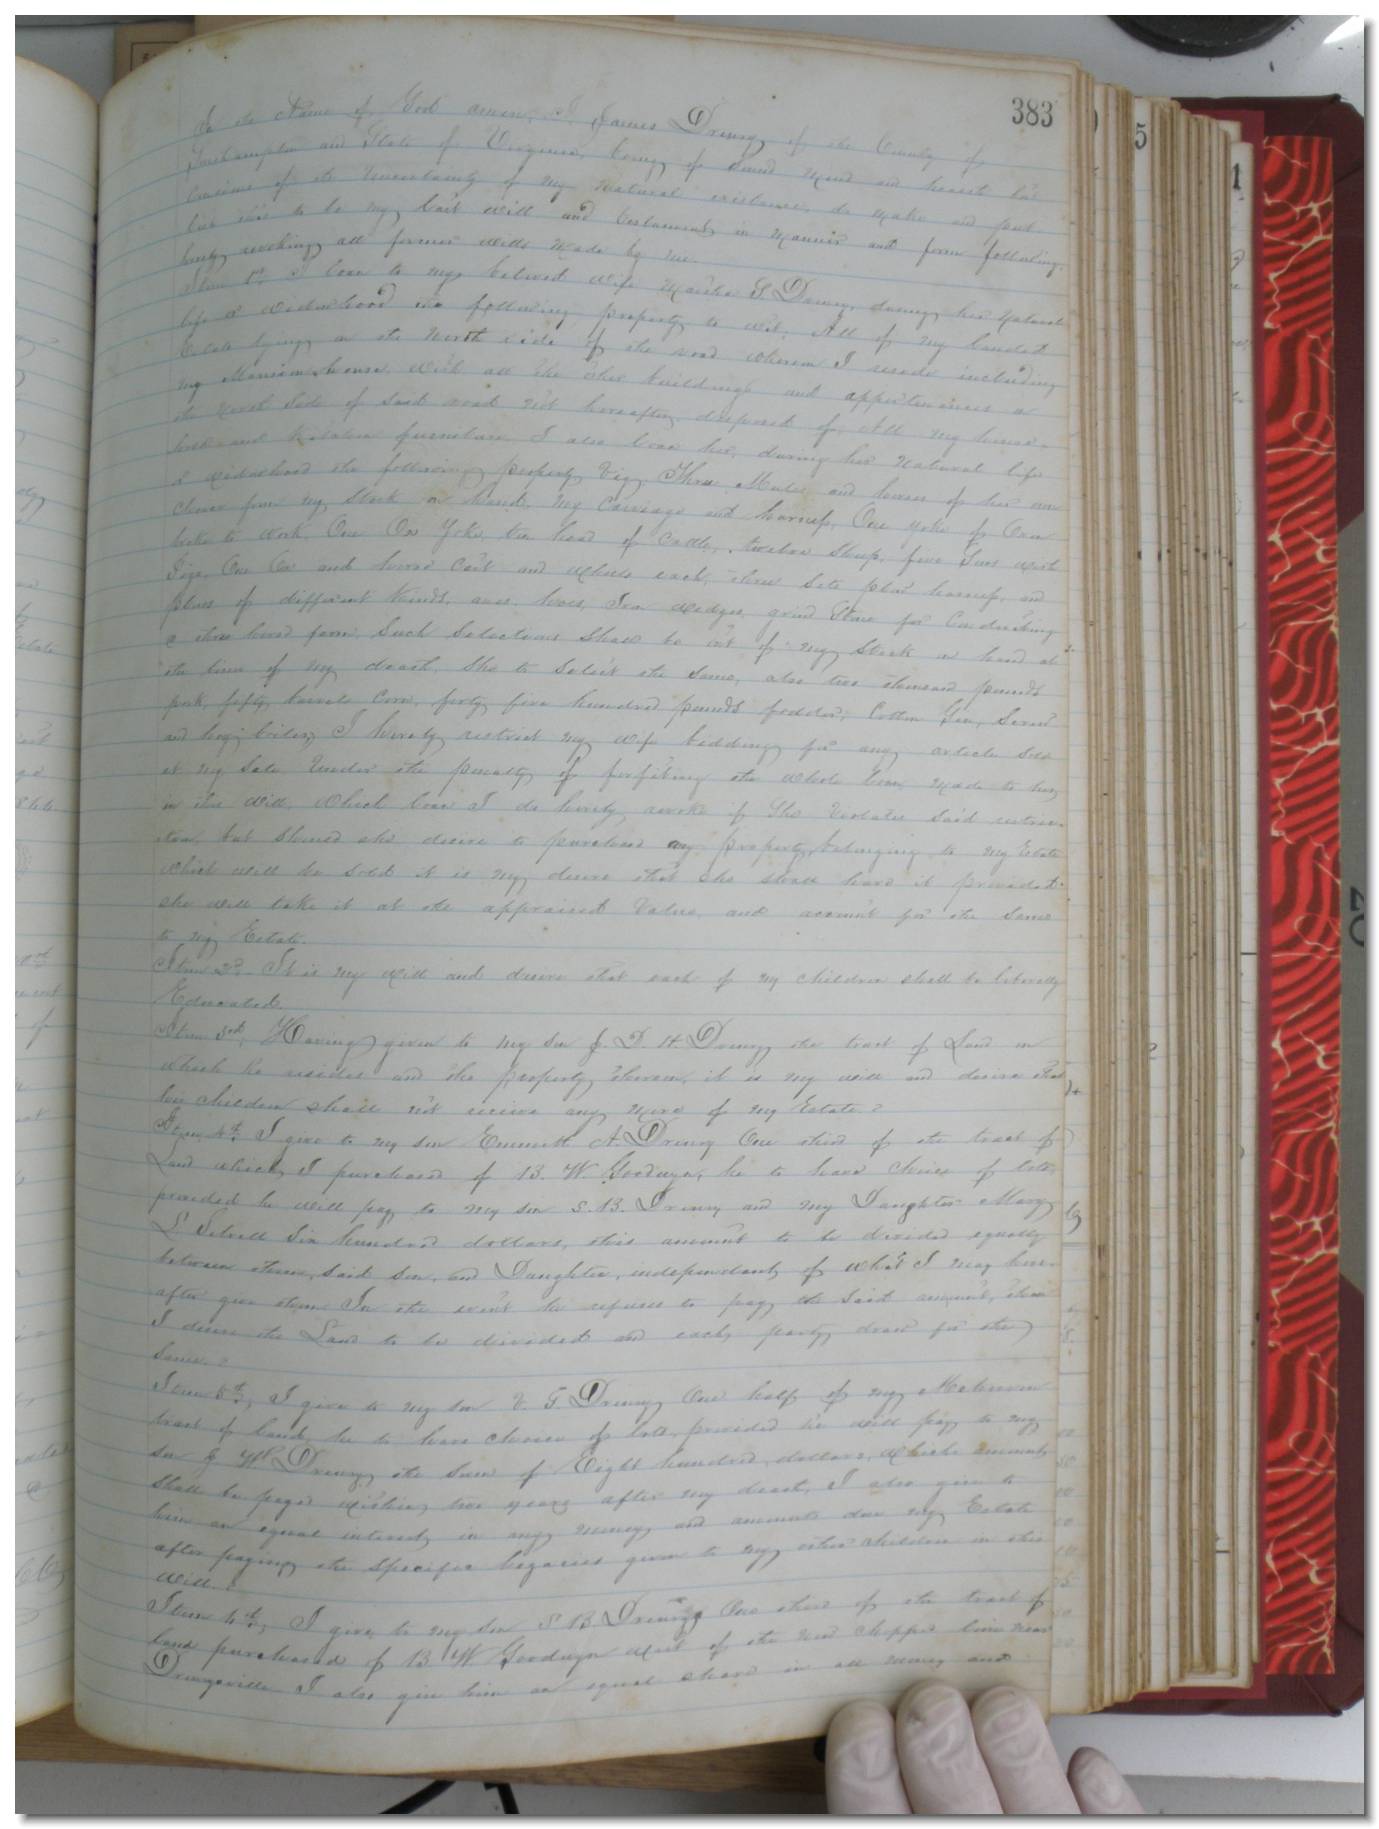 383
In the Name of God amen, I James Drewry of the County of
Southampton and State of Virginia, being of Sound mind and
of the Uncertainty of my natural existence, do make and pub-
lish this to be my last will and testament, in manner and form following,
hereby revoking all former wills made by me.
Item 1st. I loan to my beloved wife Martha G Drewry, during her Natural
life or widowhood the following property to wit, All of my landed
Estate lying on the North side of the road whereon I reside including
my Mansion house, with all the other buildings and appurtenances on
the North side of said road not hereafter disposed of. All my house-
hold and Kitchen furniture, I also loan her, during her Natural life
or widowhood the following property Viz, Three Mules and horses of her own
choice from my Stock on hand, my Carriage and harness, One yoke of Oxen
broke to work, One Ox Yoke, ten head of Cattle, twelve Sheep, five Sows with
Pigs, One Ox and horse Cart and wheels each, three sets plow harness, and
plows of different Kinds, axes, hoes, Iron wedges, grind Stone for Conducting
a three horse farm, Such Selections Shall be out of my Stock on hand at
the time of my death, She to Select the same, also two thousand pounds
pork, fifty barrels Corn, forty five hundred pounds fodder, Cotton Gin, Screw
and boilers, I hereby restrict my wife bidding for any article sold
at my Sale Under the penalty of forfeiting the whole loan, made to her
in this will, which loan I do hereby revoke if She Violates said restric-
tion, but should she desire to purchase any property belonging to my Estate
which will be sold it is my desire that she shall have it provided
she will take it at the appraised Value, and account for the same
to my Estate.
Item 2d. It is my will and desire that each of my children shall be liberally
Educated.
Item 3rd, Having given to my son J. D. H. Drewry the tract of Land on
which he resides and the property thereon, it is my will and desire that
his children shall not receive any more of my Estate.
Item 4th. I give to my son Emmett A Drewry One third of the tract of
Land which I purchased of B. W. Goodwyn, he to have choice of lots,
provided he will pay to my son S. B. Drewry and my Daughter Mary
L Sebrell Six hundred dollars, this amount to be divided equally
between them, said son, and Daughter, independently of what I may here-
after give them In the event he refuses to pay the said amount, then
I desire the Land to be divided and each party draw for the
Same.
Item 5th, I give to my son V. G Drewry One half of my
tract of land, he to have choice of lots, provided he will pay to my
son J W Drewry the sum of Eight hundred dollars, which amount
shall be payed within two years after my death, I also give to
him an equal interest in any money and amounts due my Estate
after paying the specific legacies given to my other children in this
will.
Item 6th, I give to my son S B Drewry One third of the tract of
land purchased of B W Goodwyn west of the new chopped line near
Drewrysville I also give him an equal share in all money and